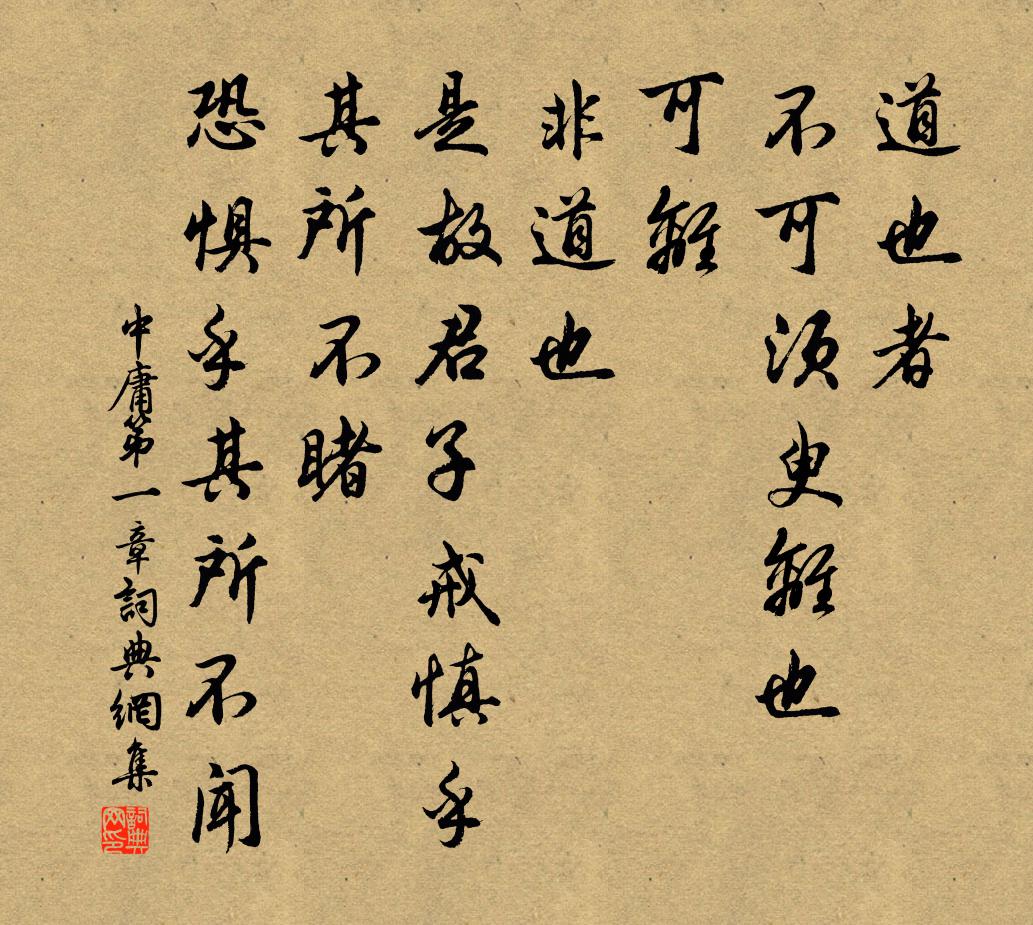 道也者
不可須臾離也
可離
非道也
是故君子戒慎乎
其所不睹
恐惧乎其所不闻
中庸第一章詞典網集
詞典网印